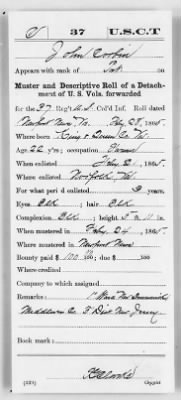 C 37 U.S.C.T
John Corbin
Appears with rank of Pvt on
Muster and Descriptive Roll of a Detach-
ment of U. S. Vols. forwarded
for the 37 Reg't U.S. Col'd Inf. Roll dated
Newport News Va. Feby 28, 1865.
Where born King & Queen Co. Va.
Age 22 y'rs; occupation Farmer
When enlisted Feby 21, 1865.
Where enlisted Norfolk, Va
For what period enlisted 3 years.
Eyes Blk; hair Blk
Complexion Blk; height 5 ft. 11 in.
When mustered in Feby 24, 1865.
Where mustered in Newport News
Bounty paid $ 100; due $ 100
Where credited
Company to which assigned
Remarks: 1' Ward New Brunswick
Middlesex Co. 3' Dist New Jersey
Book mark:
Copyist